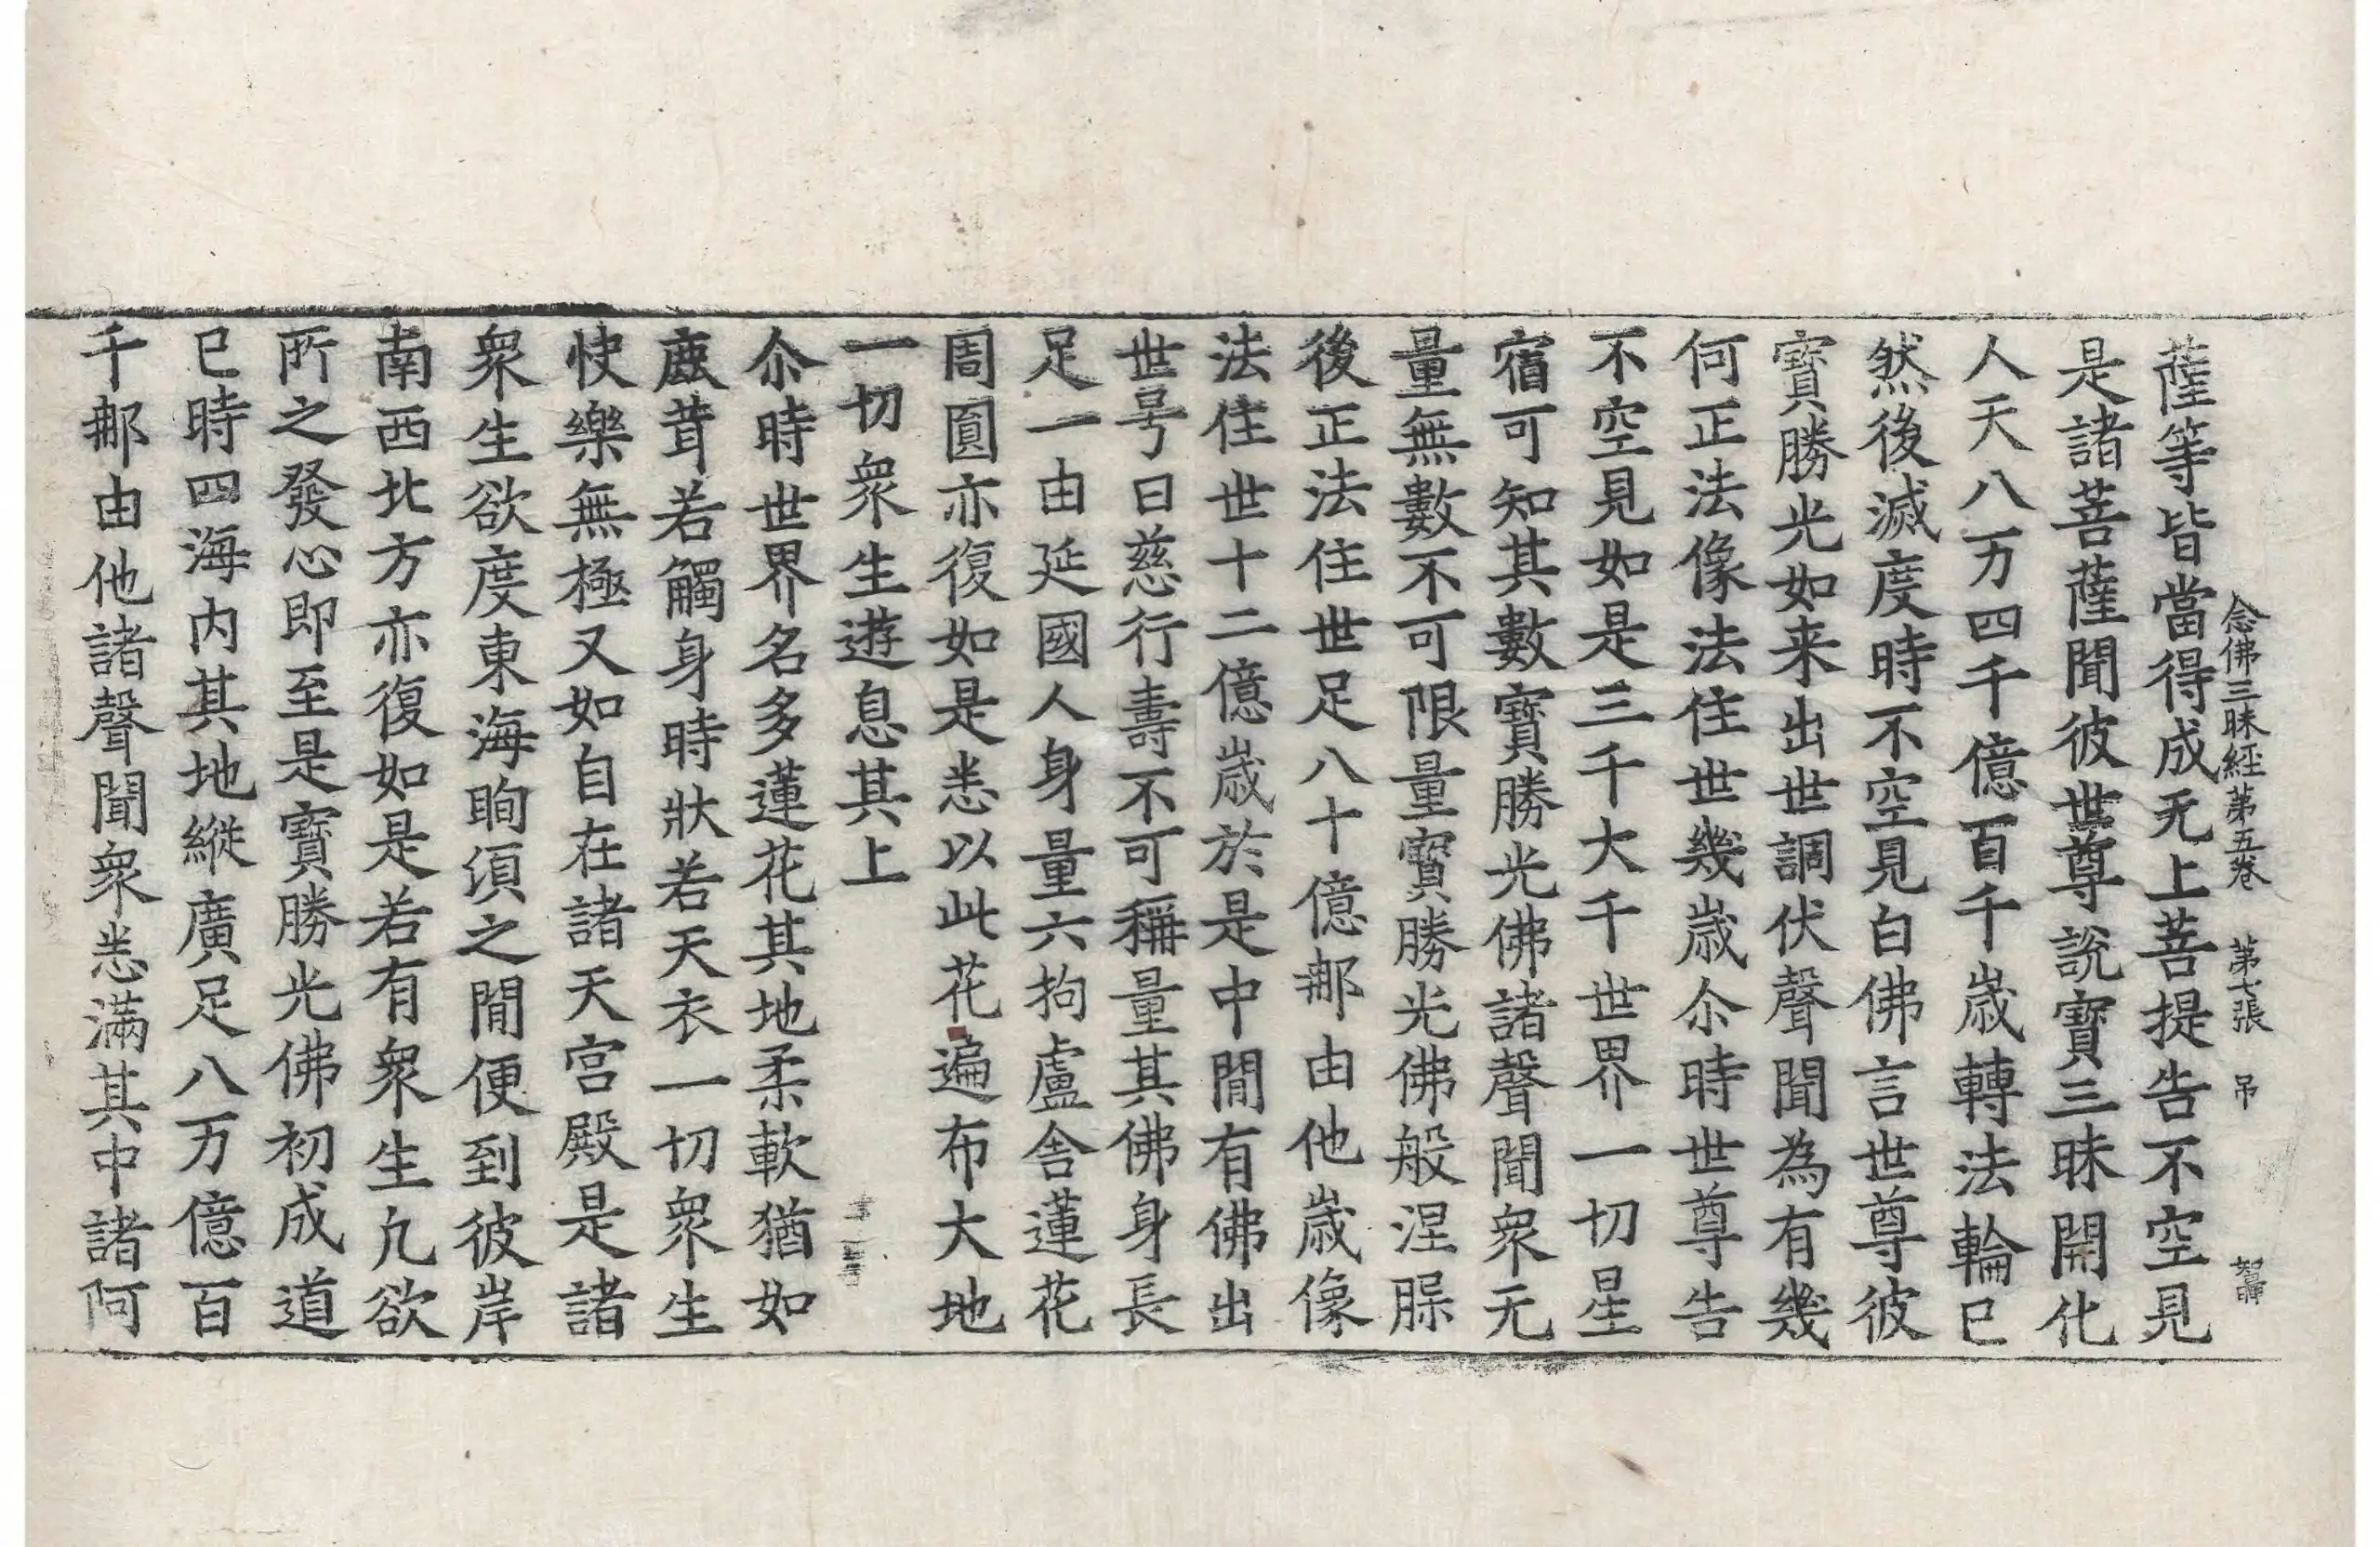 念佛三昧經第五卷 第七張 吊
薩等皆當得成无上菩提告不空見
是諸菩薩聞彼世尊說寶三昧開化
人天八万四千億百千歲轉法輪已
然後滅度時不空見白佛言世尊彼
寶勝光如来出世調伏聲聞為有幾
何正法像法住世幾歲尒時世尊告
不空見如是三千大千世界一切星
宿可知其數寶勝光佛諸聲聞衆无
量無數不可限量寶勝光佛般涅槃
後正法住世足八十億那由他歲像
法住世十二億歲於是中間有佛出
世号曰慈行壽不可稱量其佛身長
足一由延國人身量六拘盧舍蓮花
周圓亦復如是悉以此花遍布大地
一切衆生遊息其上
尒時世界名多蓮花其地柔軟猶如
鹿茸若觸身時狀若天衣一切衆生
快樂無極又如自在諸天宫殿是諸
衆生欲度東海眴湏之間便到彼岸
南西北方亦復如是若有衆生凡欲
所之發心即至是寶勝光佛初成道
已時四海内其地縱廣足八万億百
千那由他諸聲聞衆悉滿其中諸阿